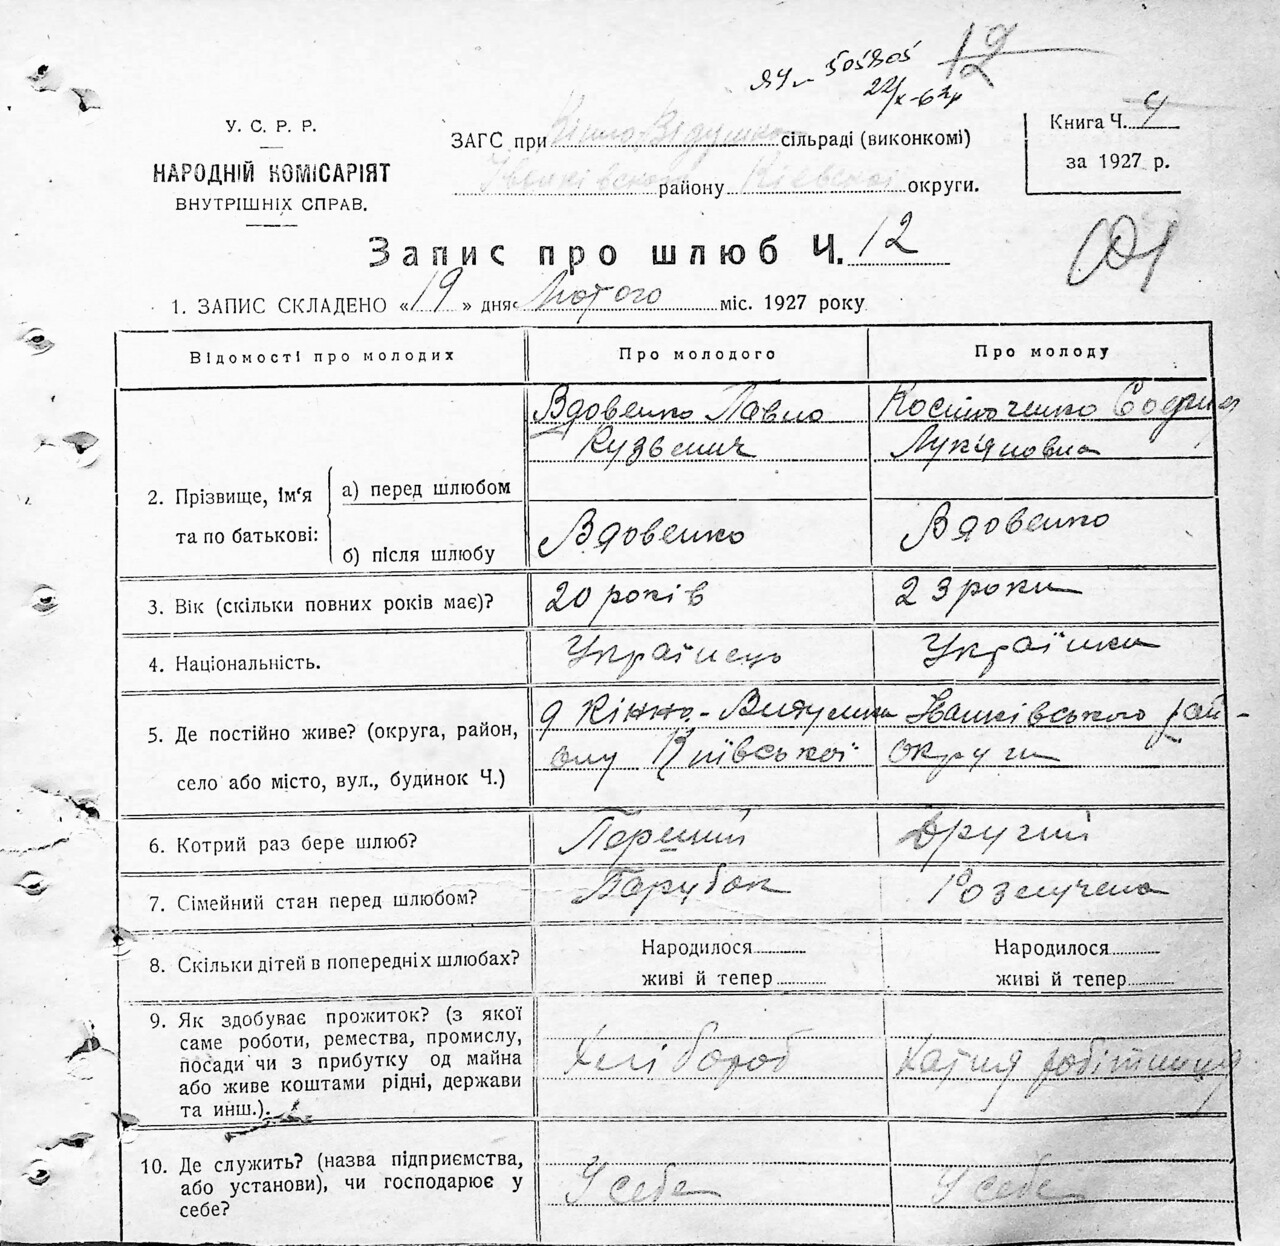 12
22/X-62р
У. С. Р. Р.
НАРОДНІЙ КОМІСАРІЯТ
ВНУТРІШНІХ СПРАВ.
ЗАГС при сільраді (виконкомі)
Іванківського району Київської округи.
Книга Ч. 4
за 1927 р.
Запис про шлюб Ч. 12
1. ЗАПИС СКЛАДЕНО «19» дня Лютого міс. 1927 року
Відомості про молодих
Про молодого
Про молоду
2. Прізвище, ім'я та по батькові:
а) перед шлюбом
Вдовенко Павло
Кузьмич
Костюченко София
Лук'яновна
б) після шлюбу
Вдовенко
Вдовенко
3. Вік (скільки повних років має)?
20 років
23 роки
4. Національність.
Українець
Українка
5. Де постійно живе? (округа, район,
село або місто, вул., будинок Ч.)
Іванківського рай-
ону Київської округи
6. Котрий раз бере шлюб?
Перший
Другий
7. Сімейний стан перед шлюбом?
Парубок
Розлучена
8. Скільки дітей в попередніх шлюбах?
Народилося
живі й тепер
Народилося
живі й тепер
9. Як здобуває прожиток? (з якої
саме роботи, ремества, промислу,
посади чи з прибутку од майна
або живе коштами рідні, держави
та инш.).
Хлібороб
Хатня робітниця
10. Де служить? (назва підприємства,
або установи), чи господарює у
себе?
У себе
У себе